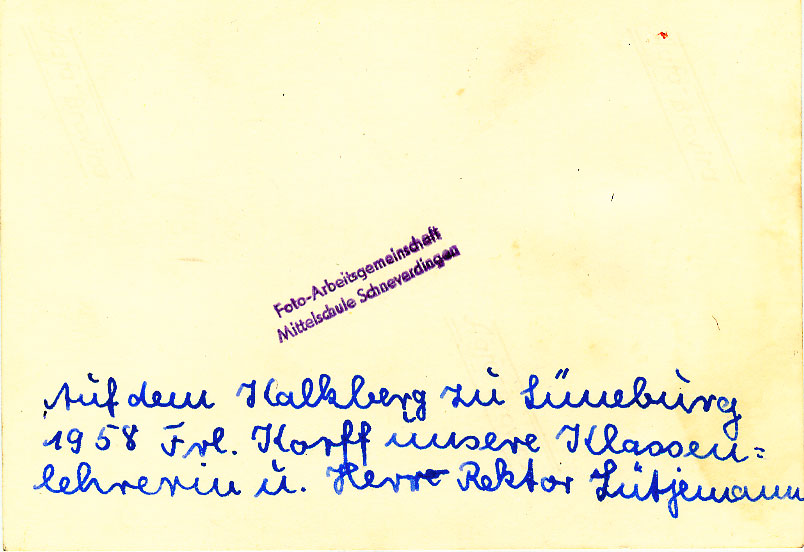 Foto-Arbeitsgemeinschaft
Mittelschule Schneverdingen
Auf dem Kalkberg zu Lüneburg
1958 Frl. Korff unsere Klassen=
lehrerin u. Herr Rektor Lütjemann